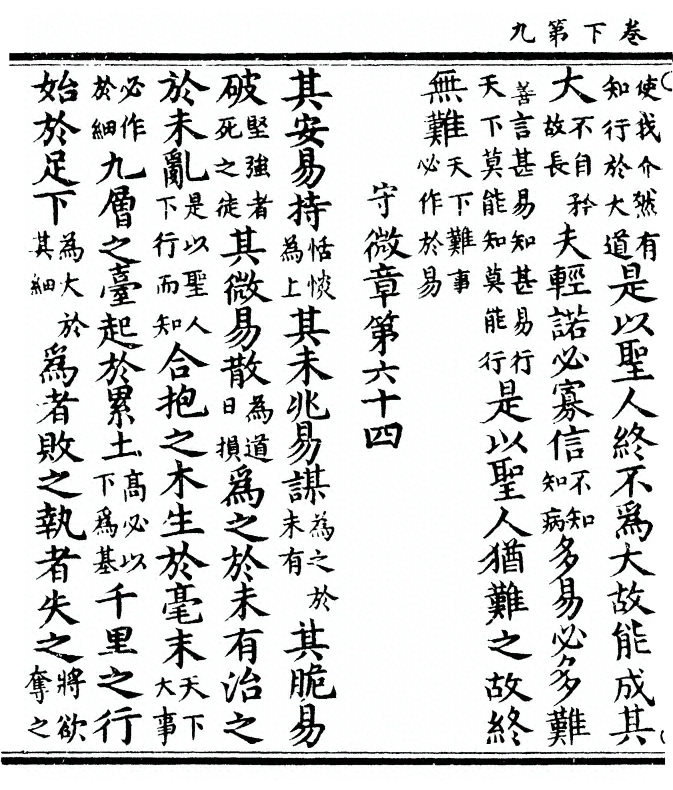 卷下第九
使我介然有知行於大道是以聖人終不爲大故能成其
大不自矜故長夫輕諾必寡信不知知病多易必多難
善言甚易知甚易行天下莫能知莫能行是以聖人猶難之故終
無難天下難事必作於易
守微章第六十四
其安易持恬惔為上其未兆易謀為之於未有其脆易
破堅強者死之徒其微易散為道日損爲之於未有治之
於未亂是以聖人下行而知合抱之木生於毫末天下大事
必作於細九層之臺起於累土高必以下爲基千里之行
始於足下為大於其細爲者敗之執者失之將欲奪之